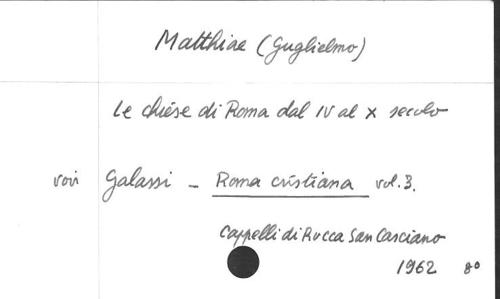 Matthiae (Guglielmo)
Le chiese di Roma dal IV al X secolo
voir Galassi - Roma cristiana vol. 3.
Cappelli di Rocca San Casciano
1962 8º